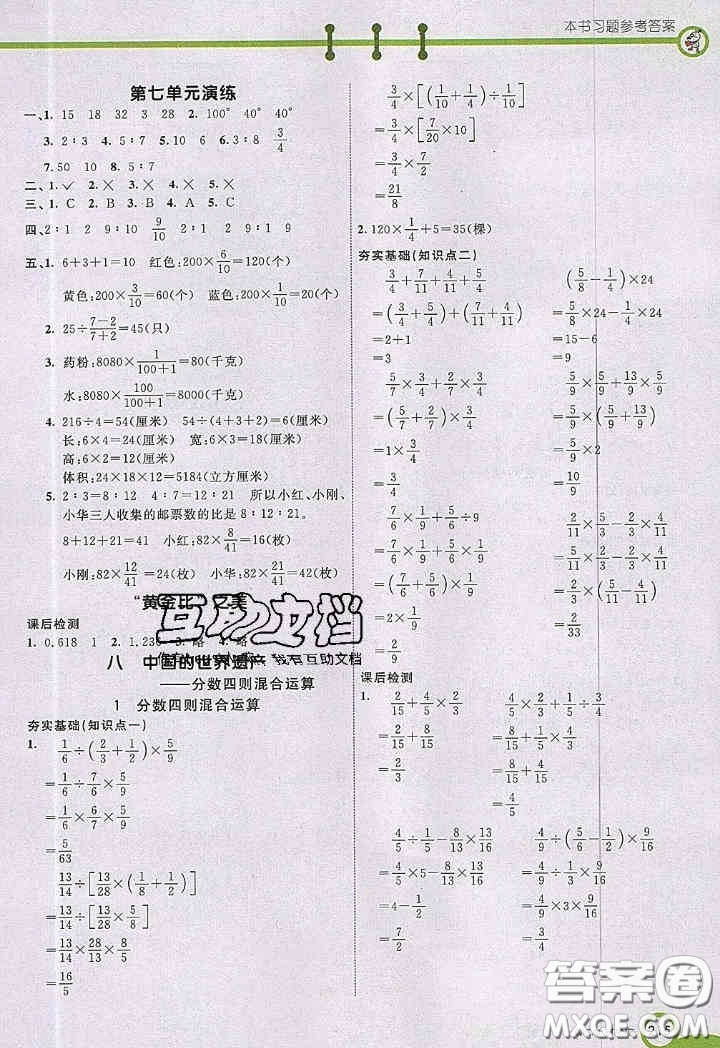 本书习题参考答案
第七单元演练
一、1. 15 18 32 3 28 2. 100° 40° 40°
3. 2∶3 4. 5∶7 5. 10 6. 3∶8 3/4
7. 50 10 8. 5∶7
二、1. ✓ 2. × 3. × 4. × 5. ×
三、1. C 2. B 3. A 4. A 5. C
四、2∶1 2∶9 9∶10 9/10 2∶1 2 9∶1 9
五、1. 6+3+1=10 红色:200×6/10=120(个)
黄色:200×3/10=60(个) 蓝色:200×1/10=20(个)
2. 25÷(7-2)/(7+2)=45(只)
3. 药粉:8080×1/(100+1)=80(千克)
水:8080×100/(100+1)=8000(千克)
4. 216÷4=54(厘米) 54÷(4+3+2)=6(厘米)
长:6×4=24(厘米) 宽:6×3=18(厘米)
高:6×2=12(厘米)
体积:24×18×12=5184(立方厘米)
5. 2∶3=8∶12 4∶7=12∶21 所以小红、小刚、
小华三人收集的邮票数的比是8∶12∶21。
8+12+21=41 小红:82×8/41=16(枚)
小刚:82×12/41=24(枚) 小华:82×21/41=42(枚)
“黄金比”之美
课后检测
1. 0.618 1 2. 1.236 3. 略 4. 略
互助文档
八 中国的世界遗产
——分数四则混合运算
1 分数四则混合运算
夯实基础(知识点一)
1. 1/6÷(2/3+1/2)×5/9
=1/6÷7/6×5/9
=1/6×6/7×5/9
=5/63
13/14÷[13/28×(1/8+1/2)]
=13/14÷[13/28×5/8]
=13/14×28/13×8/5
=16/5
3/4×[(1/4+1/10)÷1/10]
=3/4×[7/20×10]
=3/4×7/2
=21/8
2. 120×1/4+5=35(棵)
夯实基础(知识点二)
3/4+7/11+4/11+5/4
=(3/4+5/4)+(7/11+4/11)
=2+1
=3
(5/8-1/4)×24
=5/8×24-1/4×24
=15-6
=9
5/7×3/4+2/7×3/4
=(5/7+2/7)×3/4
=1×3/4
=3/4
5/9×5/9+13/9×5/9
=5/9×(5/9+13/9)
=5/9×2
=10/9
7/6×1/9+5/6÷9
=7/6×1/9+5/6×1/9
=(7/6+5/6)×1/9
=2×1/9
=2/9
2/11×5/3-2/3×4/11
=2/11×5/3-4/3×2/11
=2/11×(5/3-4/3)
=2/11×1/3
=2/33
课后检测
1. 2/15+4/5×2/3
=2/15+8/15
=2/3
4/9×6/5+1/5÷3/4
=8/15+4/15
=4/5
4/5÷1/5-8/13×13/16
=4/5×5-8/13×13/16
=4-1/2
=7/2
4/9÷(5/6-1/2)×9/16
=4/9÷1/3×9/16
=4/9×3×9/16
=3/4
答案圈